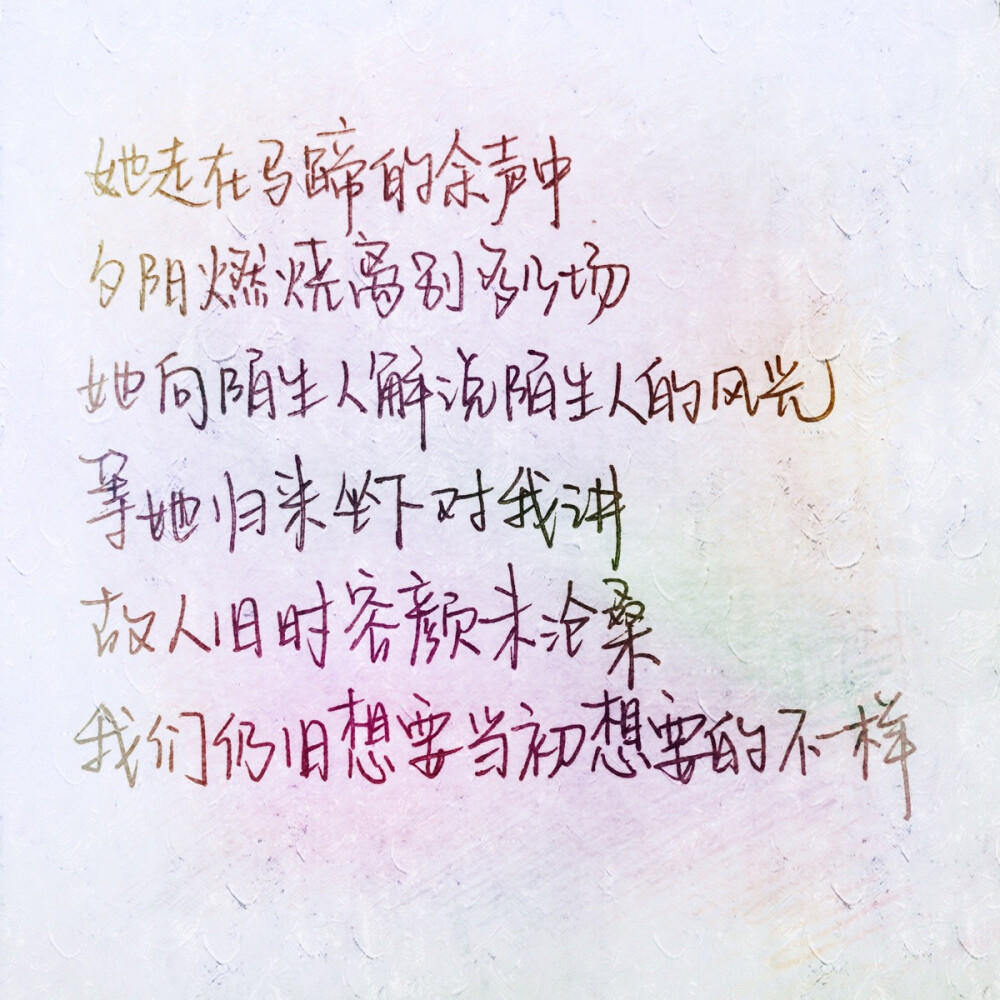 她走在马蹄的余声中
夕阳燃烧离别多少场
她向陌生人解说陌生人的风光
等她归来坐下对我讲
故人旧时容颜未沧桑
我们仍旧想要当初想要的不一样